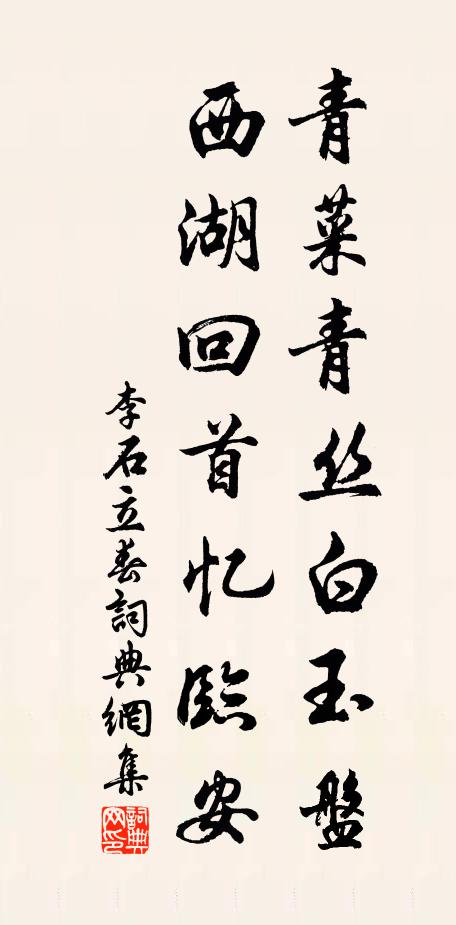 青菜青丝白玉盤
西湖回首忆臨安
李石立春詞典網集
詞典网印